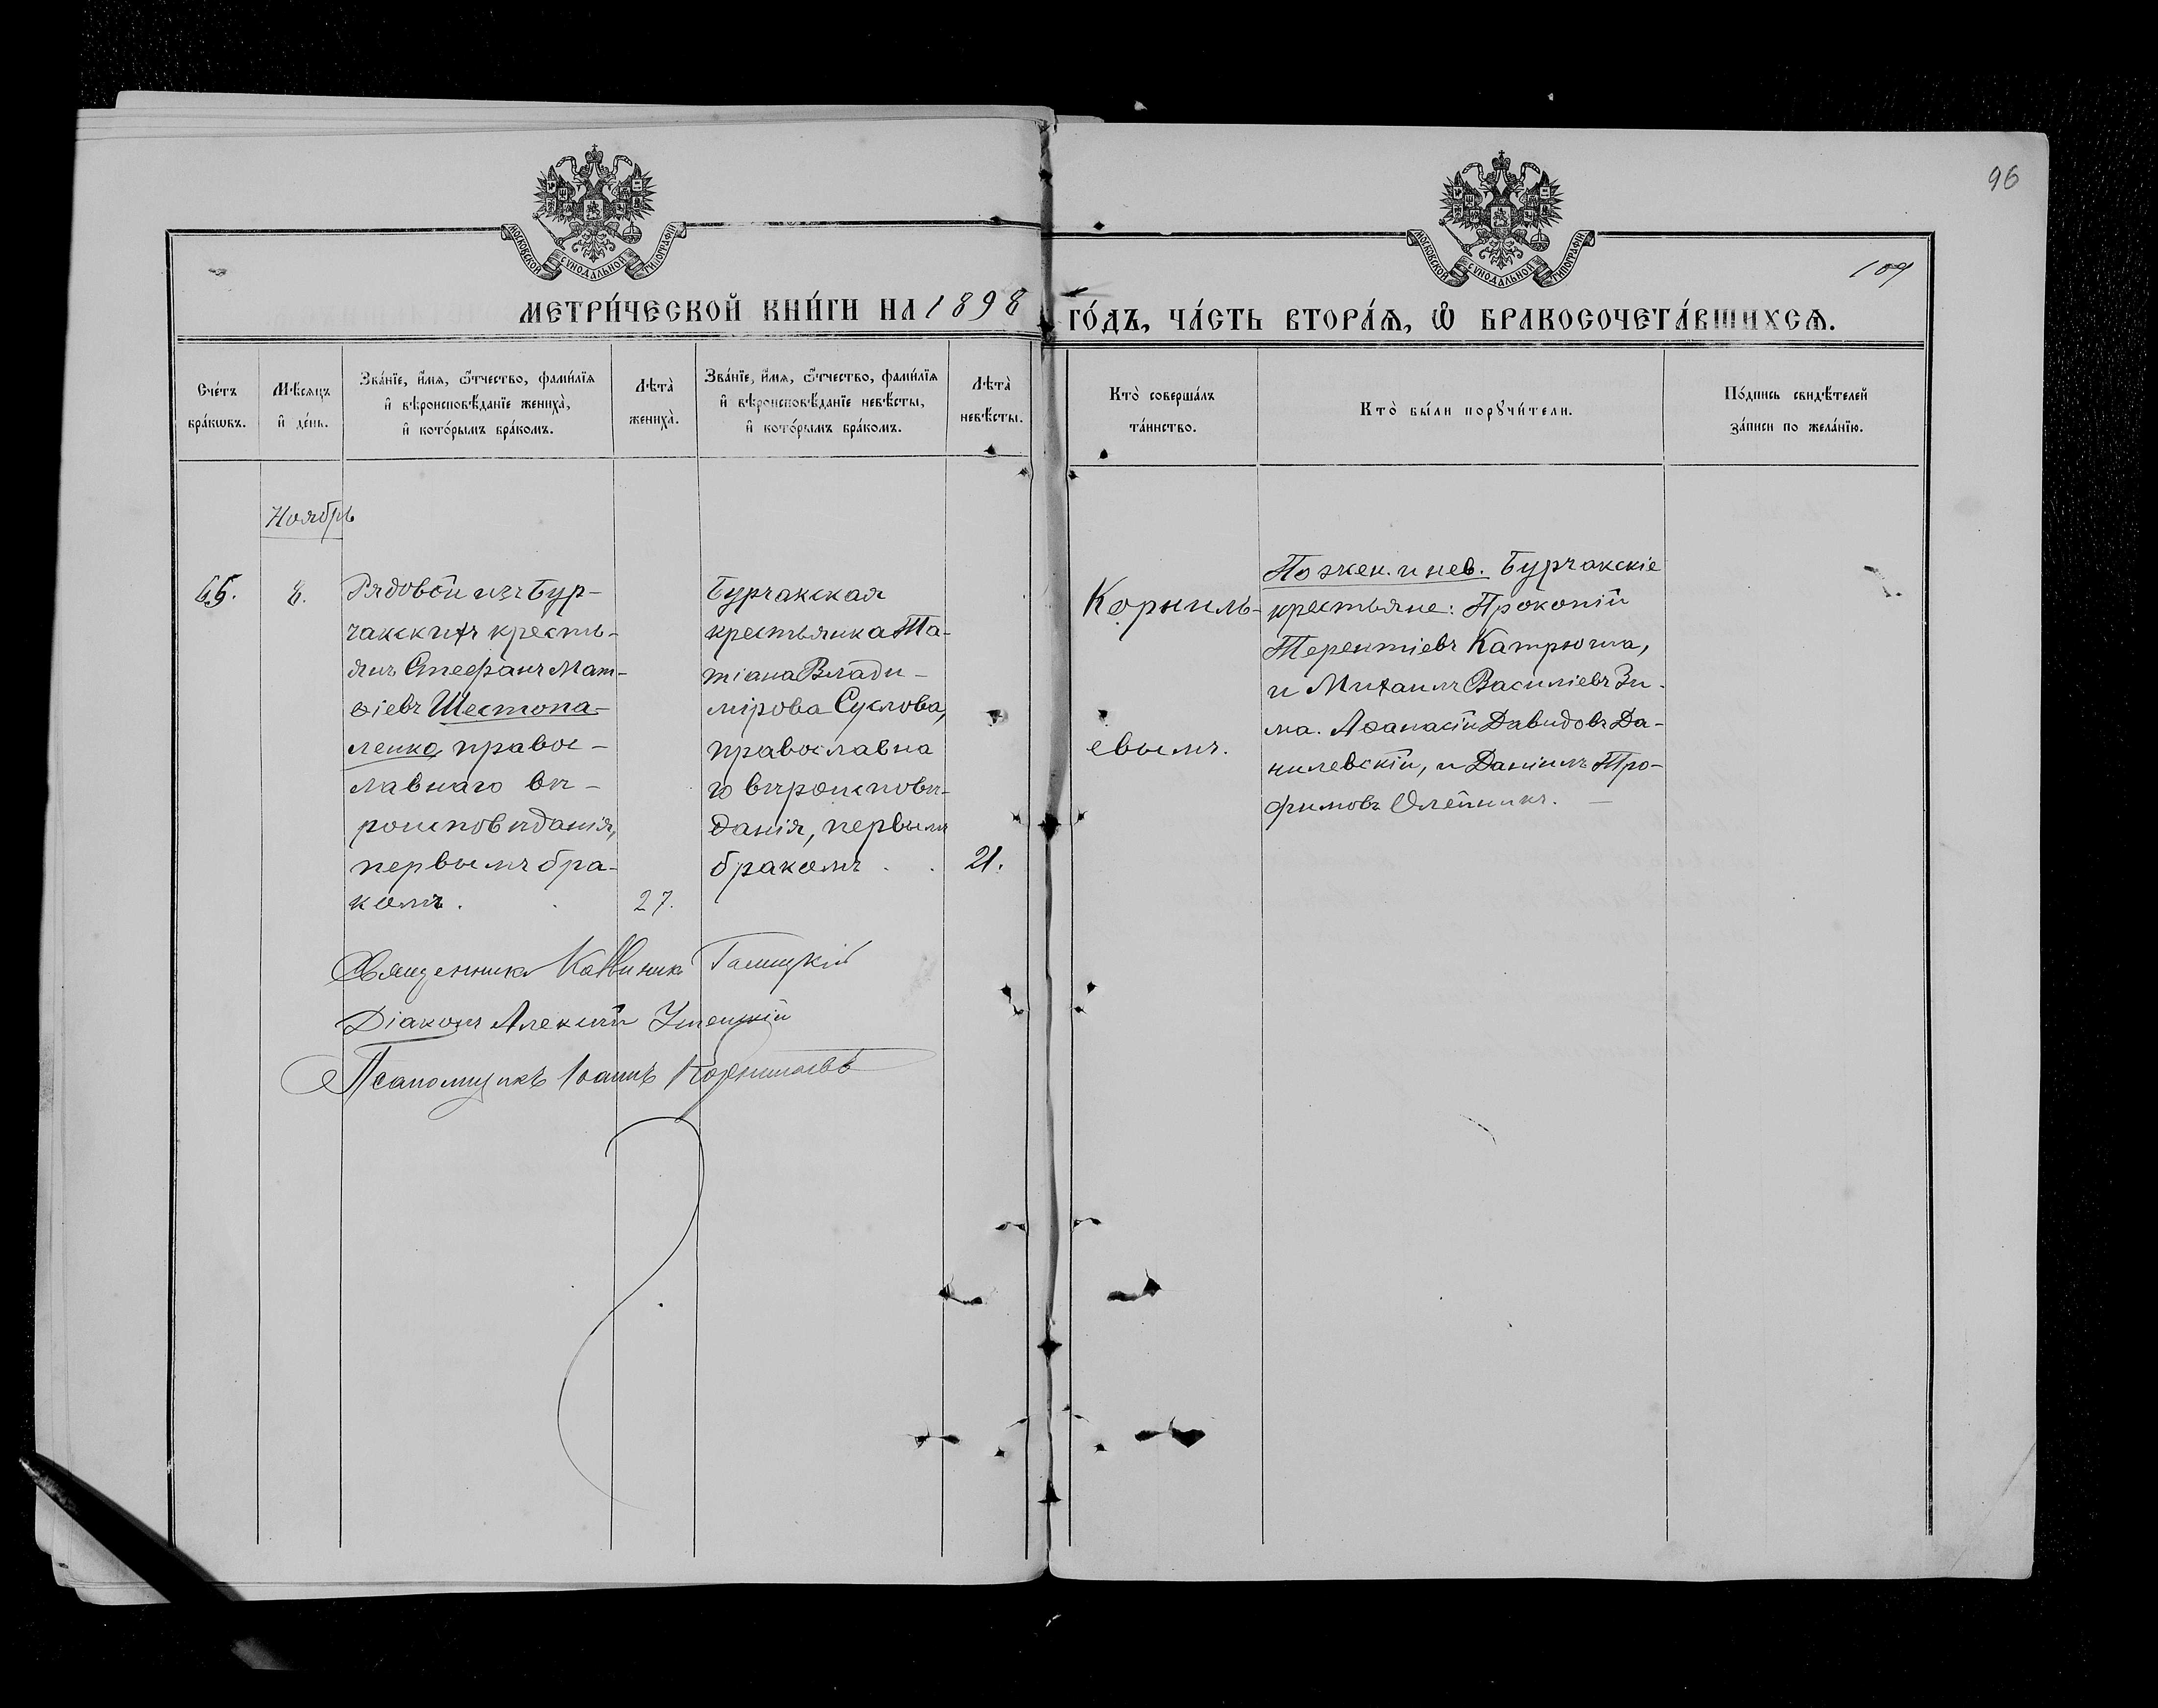 96
109
МОСКОВСКОЙ СУНОДАЛЬНОЙ ТИПОГРАФІИ
МОСКОВСКОЙ СУНОДАЛЬНОЙ ТИПОГРАФІИ
МЕТРИ́ЧЕСКОЙ КНИ́ГИ НА 1898 ГО́ДЪ, ЧА́СТЬ ВТОРА́Ѧ, Ѽ БРАКОСОЧЕТА́ВШИХСѦ.
Сче́тъ бра́кѡвъ.
Мѣ́сяцъ и҆ де́нь.
Зва́нїе, и҆́мѧ, ѻ҆́тчество, фами́лїѧ
и҆ вѣроисповѣ́данїе жениха̀,
и҆ кото́рымъ бра́комъ.
Лѣта̀ жениха̀.
Зва́нїе, и҆́мѧ, ѻ҆́тчество, фами́лїѧ
и҆ вѣроисповѣ́данїе невѣ́сты,
и҆ кото́рымъ бра́комъ.
Лѣта̀ невѣ́сты.
Кто̀ соверша́лъ та́инство.
Кто̀ бы́ли порꙋчи́тели.
По́дпись свидѣ́телей
за́писи по жела́нїю.
Ноябрь
65.
8.
Рядовой изъ Бур-
чакскихъ кресть-
янъ Стефанъ Мат-
ѳіевъ Шестопа-
ленко, правос-
лавнаго вѣ-
роисповѣданія,
первымъ бра-
комъ.
27.
Бурчакская
крестьянка Та-
тіана Влади-
мірова Суслова,
православна
го вѣроисповѣ-
данія, первымъ
бракомъ
21.
Корниль-
евымъ.
По жен. и нев. Бурчакскіе
крестьяне: Прокопій
Терентіевъ Катрюша,
и Михаилъ Василіевъ Зи-
ма. Аѳанасій Давидовъ Да-
нилевскій, и Даніилъ Тро-
фимовъ Олейникъ.
Священникъ Галицкій
Діаконъ Алексій
Псаломщикъ Іоаннъ